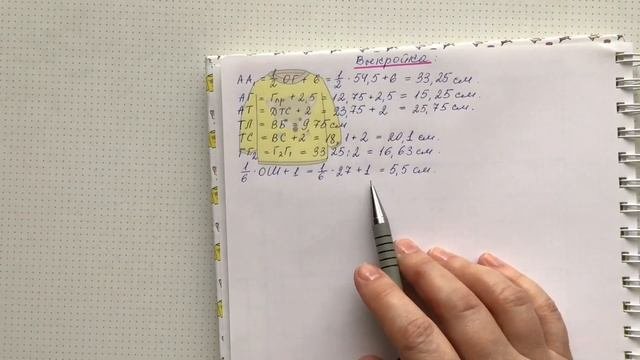 Выкройка:
АА₁ = 1/2 ОГ + 6 = 1/2 · 54,5 + 6 = 33,25 см.
АГ = Гпр + 2,5 = 12,75 + 2,5 = 15,25 см.
АТ = ДТС + 2 = 23,75 + 2 = 25,75 см.
ТЛ = ВБ = 9,75 см
ТС = ВС + 2 = 18,1 + 2 = 20,1 см.
ГГ₂ = Г₂Г₁ = 33,25 : 2 = 16,63 см.
1/6 · ОШ + 1 = 1/6 · 27 + 1 = 5,5 см.